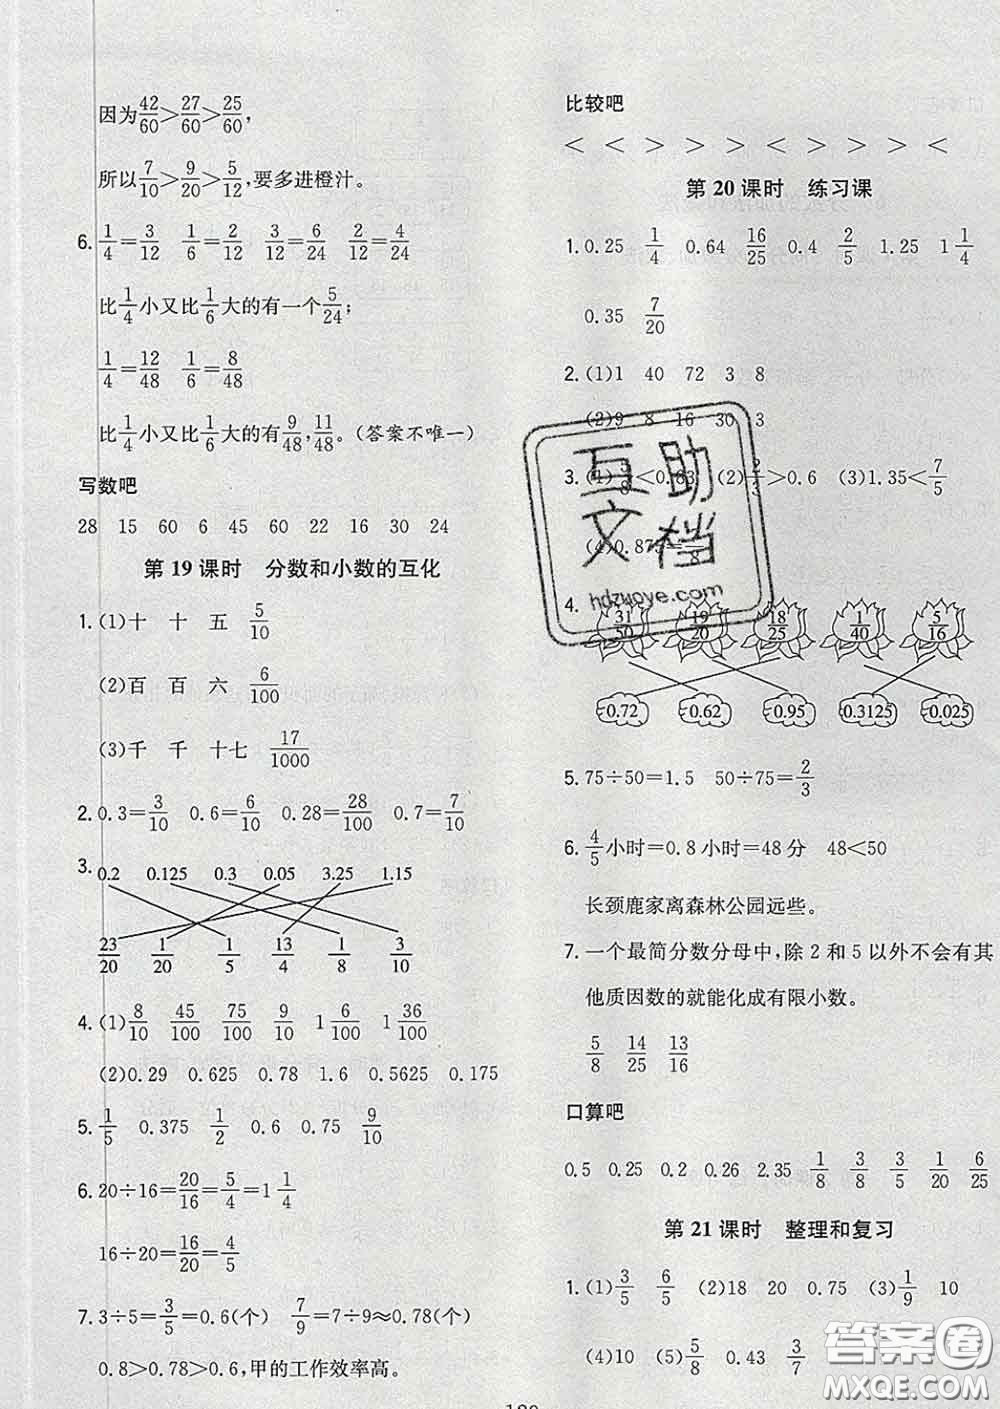 因为42/60>27/60>25/60,
所以7/10>9/20>5/12,要多进橙汁。
6. 1/4=3/12 1/6=2/12 3/12=6/24 2/12=4/24
比1/4小又比1/6大的有一个5/24;
1/4=12/48 1/6=8/48
比1/4小又比1/6大的有9/48,11/48。(答案不唯一)
写数吧
28 15 60 6 45 60 22 16 30 24
第19课时 分数和小数的互化
1.(1)十 十 五 5/10
(2)百 百 六 6/100
(3)千 千 十七 17/1000
2. 0.3=3/10 0.6=6/10 0.28=28/100 0.7=7/10
3. 0.2 0.125 0.3 0.05 3.25 1.15
23/20 1/20 1/5 13/4 1/8 3/10
4.(1)8/10 45/100 75/100 9/10 1 6/100 1 36/100
(2)0.29 0.625 0.25 1.8 0.5625 0.175
5. 1/5 0.375 1/2 0.6 0.75 9/10
6. 20÷16=20/16=5/4=1 1/4
16÷20=16/20=4/5
7. 3÷5=3/5=0.6(个) 7/9=7÷9≈0.78(个)
0.8>0.78>0.6,甲的工作效率高。
比较吧
< < > > > < > > > <
第20课时 练习课
1. 0.25 1/4 0.64 16/25 0.4 2/5 1.25 1 1/4
0.35 7/20
2.(1)1 40 72 3 8
(2)9 8 16 30 3
3.(1)5/8<0.63 (2)2/3>0.6 (3)1.35<7/5
(4)0.875=7/8
4. 31/50 19/20 18/25 1/40 5/16
0.72 0.62 0.95 0.3125 0.025
5. 75÷50=1.5 50÷75=2/3
6. 4/5小时=0.8小时=48分 48<50
长颈鹿家离森林公园远些。
7. 一个最简分数分母中,除2和5以外不会有其
他质因数的就能化成有限小数。
5/8 14/25 13/16
口算吧
0.5 0.25 0.2 0.26 2.35 1/8 3/8 3/5 1/20 6/25
第21课时 整理和复习
1.(1)3/5 6/5 (2)18 20 0.75 (3)1/9 10
(4)10 (5)5/8 0.43 3/7
互助
文档
hdzuoye.com
答案圈
MXQE.COM